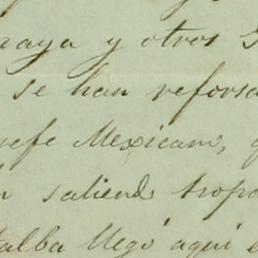 raya y otros G
se han reforsa
uefe Mexicano, q
n saliendo tropa
alba llegó aqui e